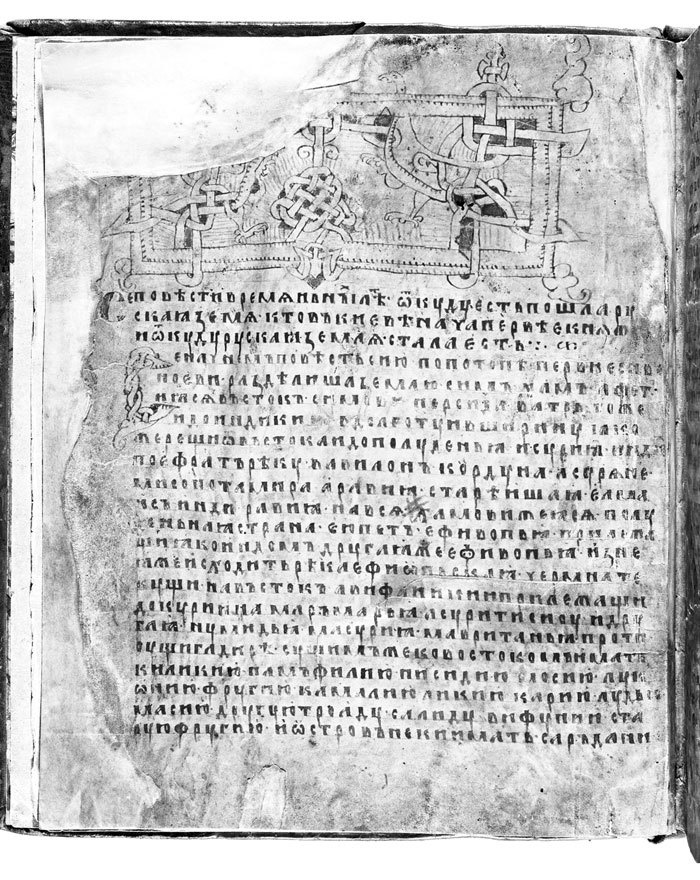 Се повѣсти времѧньны лѣт ѿкуду єсть пошла ру
скаꙗ земѧ кто въ києвѣ нача первѣє кнѧж
и ѿкуду рускаꙗ землѧ стала єсть
Се начнемъ повѣсть сию по потопѣ первиє снве
ноєви раздѣлиша землю симъ хамъ афет
и ꙗсѧ въстокъ симови персида ватрь тоже
и до индикиꙗ в долготу и в ширину ꙗко
же рещи ѿ въстока и до полуденьꙗ и суриꙗ и инди
по єфратъ рѣку вавилонъ кордуна асурѧне
мисопотамира аравиꙗ старѣишаꙗ єлма
исъ инди равиꙗ на всѧ хамови же ꙗсѧ полу
деньнаꙗ страна єюпетъ єфивопьꙗ прилежа
щиꙗ ко индомъ другаꙗ же єфивопьꙗ из не
ꙗ же исходить рѣка єфиѡпьскаꙗ чермна те
кущи на въстокъ прилежащи
до куриниꙗ маръмарьꙗ асурити и дру
гаꙗ нумидьꙗ масуриꙗ мавританьꙗ проти
ву сущи гадирѣ сущимъ же ко востокомъ имать
киликию памъфилию писидию мосию лук
ѡнию фругию камалию ликию карию лудью
масию другую троаду салиду вифунию ста
рую фругию и ѡстровъ неки имать саръдани